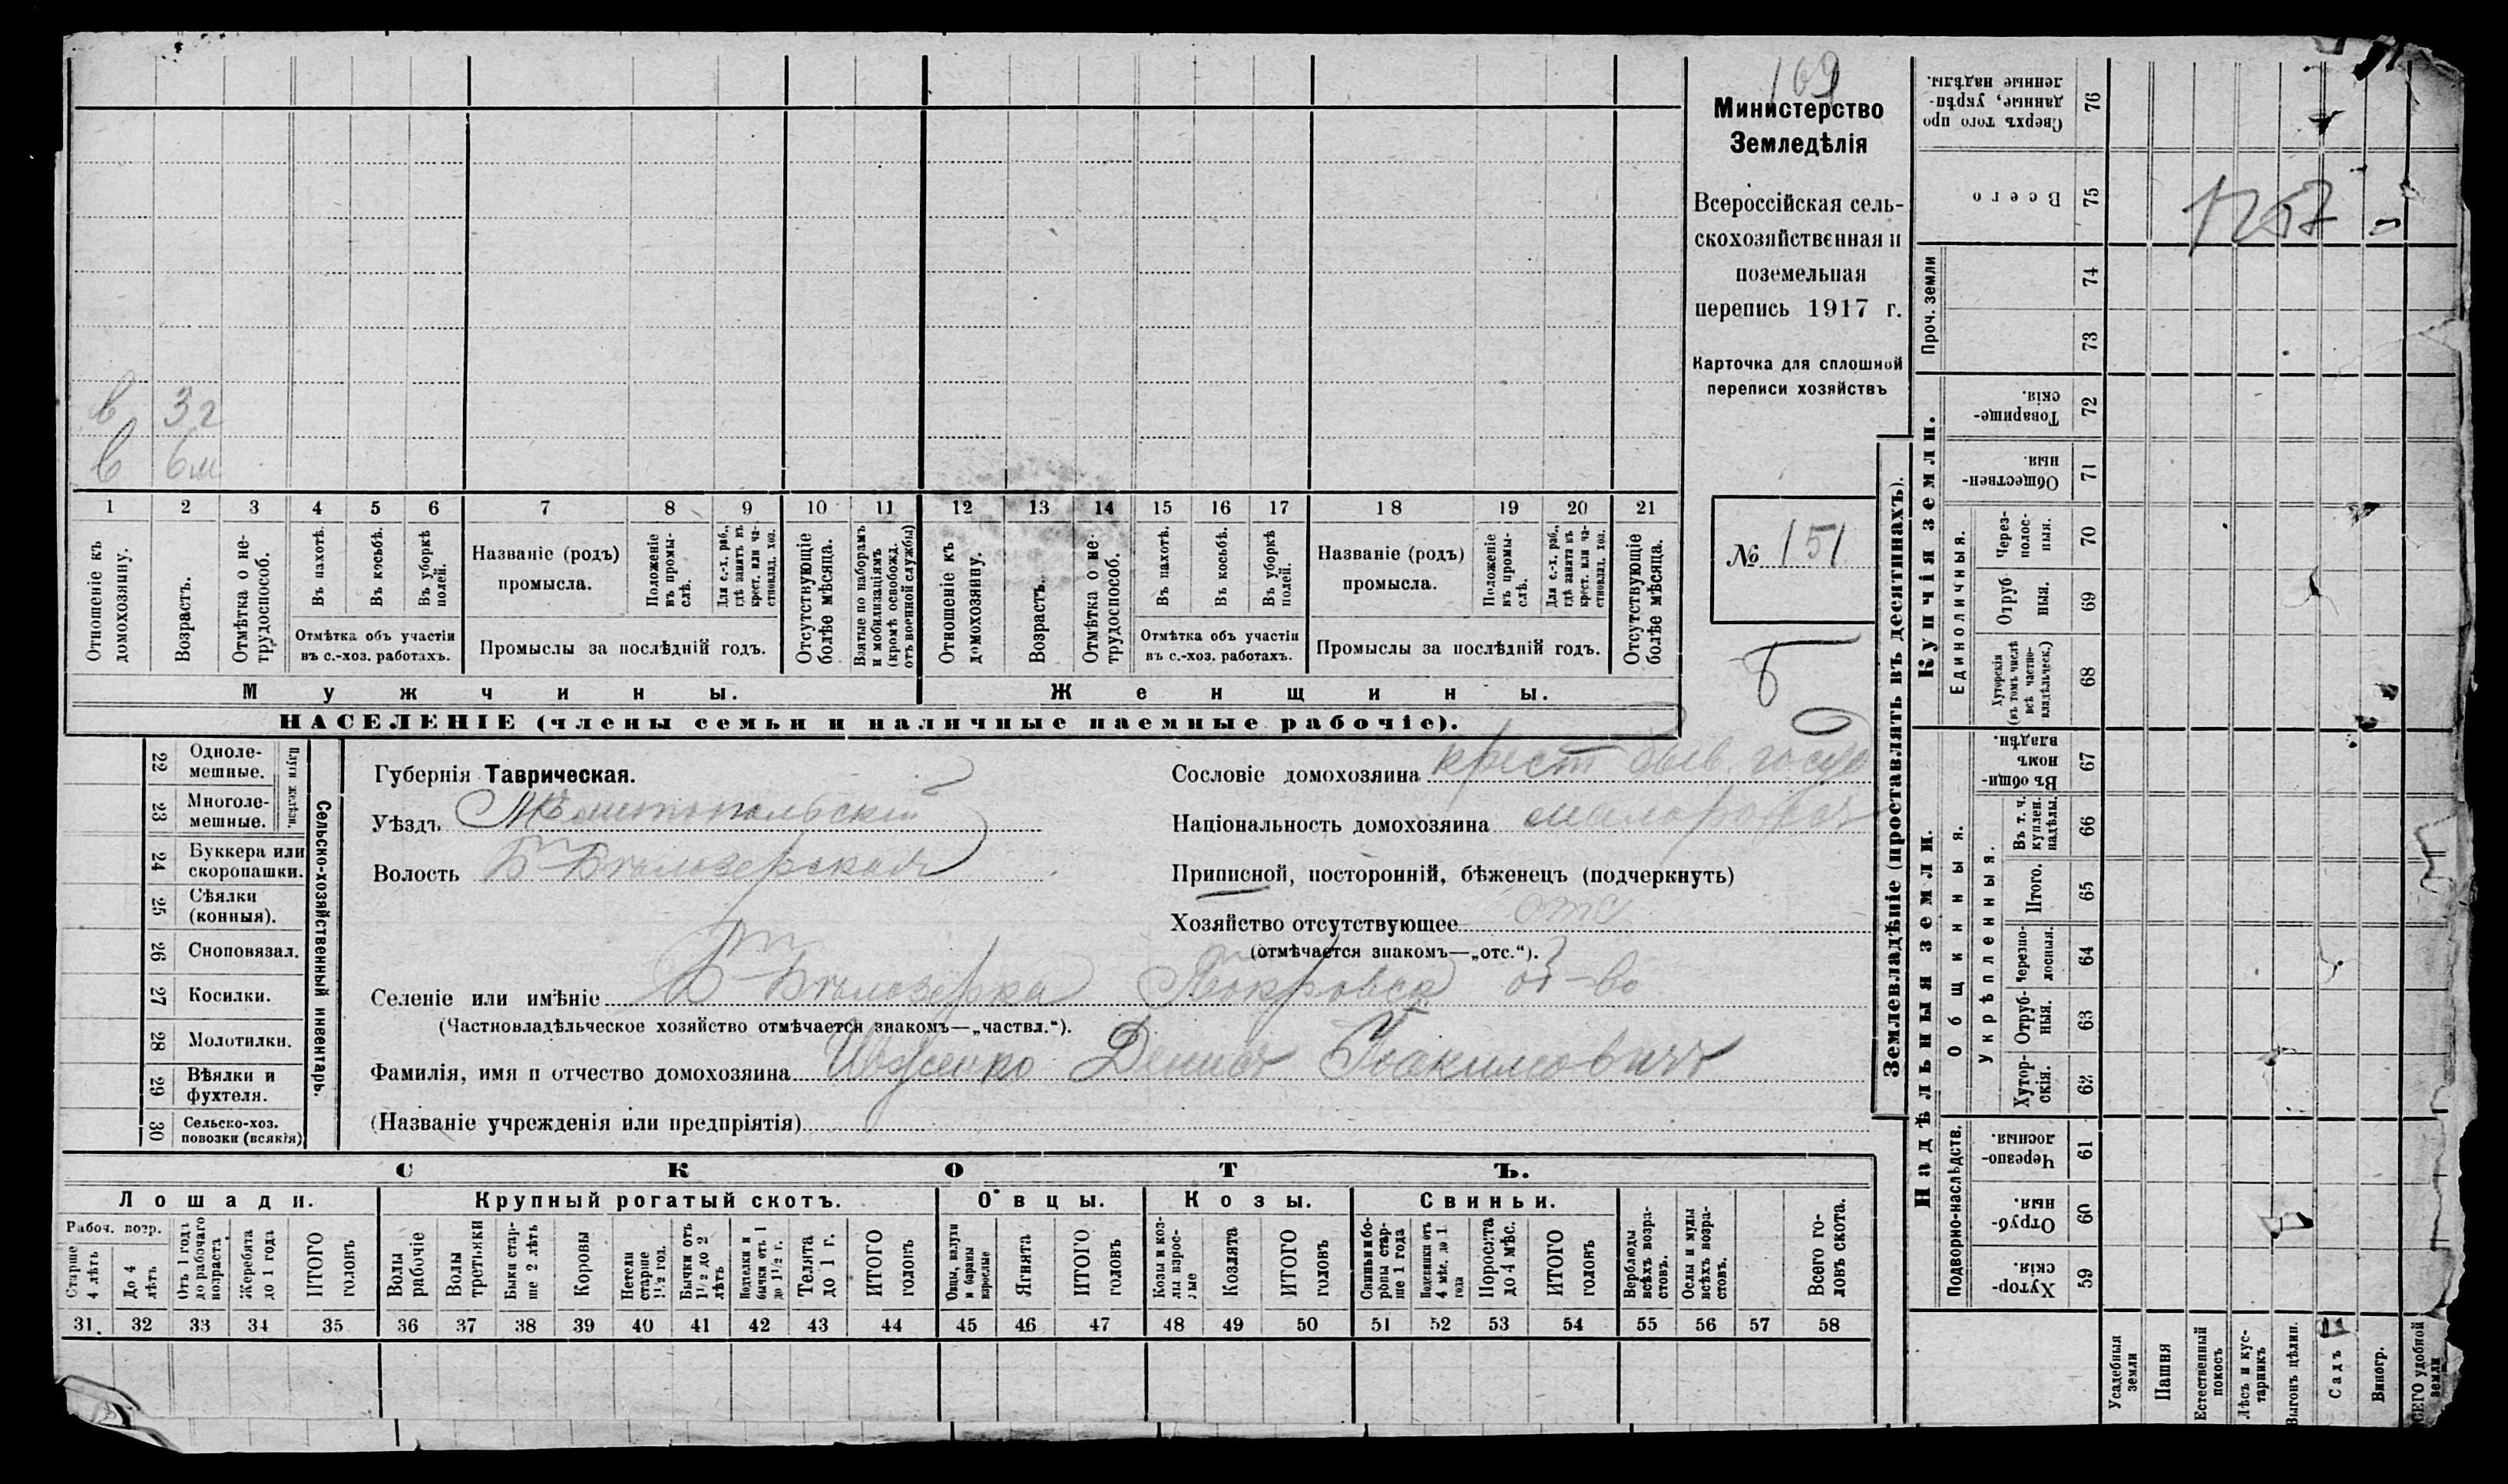 169
Министерство
Земледѣлія
Всероссійская сель-
скохозяйственная и
поземельная
перепись 1917 г.
Карточка для сплошной
переписи хозяйствъ
№ 151
в 3 г
в 6 м
1 2 3 4 5 6 7 8 9 10 11 12 13 14 15 16 17 18 19 20 21
Отношеніе къ домохозяину.
Возрастъ.
Отмѣтка о не-трудоспособ.
Въ пахотѣ.
Въ косьбѣ.
Въ уборкѣ полей.
Отмѣтка объ участіи
въ с.-хоз. работахъ.
Названіе (родъ)
промысла.
Положеніе въ промы-слѣ.
Для с.-х. раб., гдѣ занятъ въ крест. или ча-стновлад. хоз.
Промыслы за послѣдній годъ.
Отсутствующіе болѣе мѣсяца.
Взятые по наборамъ и мобилизаціямъ (кромѣ освобожд. отъ военной службы)
Отношеніе къ домохозяину.
Возрастъ.
Отмѣтка о не-трудоспособ.
Въ пахотѣ.
Въ косьбѣ.
Въ уборкѣ полей.
Отмѣтка объ участіи
въ с.-хоз. работахъ.
Названіе (родъ)
промысла.
Положеніе въ промы-слѣ.
Для с.-х. раб., гдѣ занята въ крест. или ча-стновлад. хоз.
Промыслы за послѣдній годъ.
Отсутствующіе болѣе мѣсяца.
Мужчины.
Женщины.
НАСЕЛЕНІЕ (члены семьи и наличные наемные рабочіе).
22 Одноле-мешные.
23 Многоле-мешные.
Плуги желѣзн.
24 Буккера или скоропашки.
25 Сѣялки (конныя).
26 Сноповязал.
27 Косилки.
28 Молотилки.
29 Вѣялки и фухтеля.
30 Сельско-хоз. повозки (всякія)
Сельско-хозяйственный инвентарь.
Губернія Таврическая.
Уѣздъ Мелитопольскій
Волость Б-Бѣлозерская
Сословіе домохозяина крест быв. госуд
Національность домохозяина малороссъ
Приписной, посторонній, бѣженецъ (подчеркнуть)
Хозяйство отсутствующее отс
(отмѣчается знакомъ—„отс.“).
Селеніе или имѣніе Б-Бѣлозерка Покровск об-во
(Частновладѣльческое хозяйство отмѣчается знакомъ—„частвл.“).
Фамилія, имя и отчество домохозяина Денисъ Іоакимовичъ
(Названіе учрежденія или предпріятія)
СКОТЪ.
Лошади. Крупный рогатый скотъ. Овцы. Козы. Свиньи.
Рабоч. возр.
Старше 4 лѣтъ
До 4 лѣтъ
Отъ 1 года до рабочаго возраста
Жеребята до 1 года
ИТОГО головъ
Волы рабочіе
Волы третьяки
Быки стар-ше 2 лѣтъ
Коровы
Нетели старше 1½ год.
Бычки отъ 1½ до 2 лѣтъ
Подтелки и бычки отъ 1 до 1½ г.
Телята до 1 г.
ИТОГО головъ
Овцы, валухи и бараны взрослые
Ягнята
ИТОГО головъ
Козы и коз-лы взрос-лые
Козлята
ИТОГО головъ
Свиньи и бо-ровы стар-ше 1 года
Подсвинки отъ 4 мѣс. до 1 года
Поросята до 4 мѣс.
ИТОГО головъ
Верблюды всѣхъ возра-стовъ.
Ослы и мулы всѣхъ возра-стовъ.
Всего го-ловъ скота.
31. 32 33 34 35 36 37 38 39 40 41 42 43 44 45 46 47 48 49 50 51 52 53 54 55 56 57 58
Землевладѣніе (проставлять въ десятинахъ).
Надѣльныя земли.
Купчія земли.
Подворно-наслѣдств.
Хутор-скія. 59
Отруб-ныя. 60
Черезпо-лосныя. 61
Общинныя.
Укрѣпленныя.
Хутор-скія. 62
Отруб-ныя. 63
Черезпо-лосныя. 64
Итого. 65
Въ т. ч. куплен. надѣлы. 66
Въ общи-номъ владѣн. 67
Единоличныя.
Хуторскія (въ томъ числѣ всѣ частно-владѣльческ.) 68
Отруб-ныя. 69
Через-полос-ныя. 70
Обществен-ныя. 71
Товарище-скія. 72
Проч. земли
73
74
Всего 75
Сверхъ того про данные, укрѣп-ленные надѣлы. 76
1257
Усадебныя земли
Пашня
Естественный покосъ
Лѣсъ и кус-тарникъ
Выгонъ цѣлин.
Садъ
Виногр.
ВСЕГО удобной земли